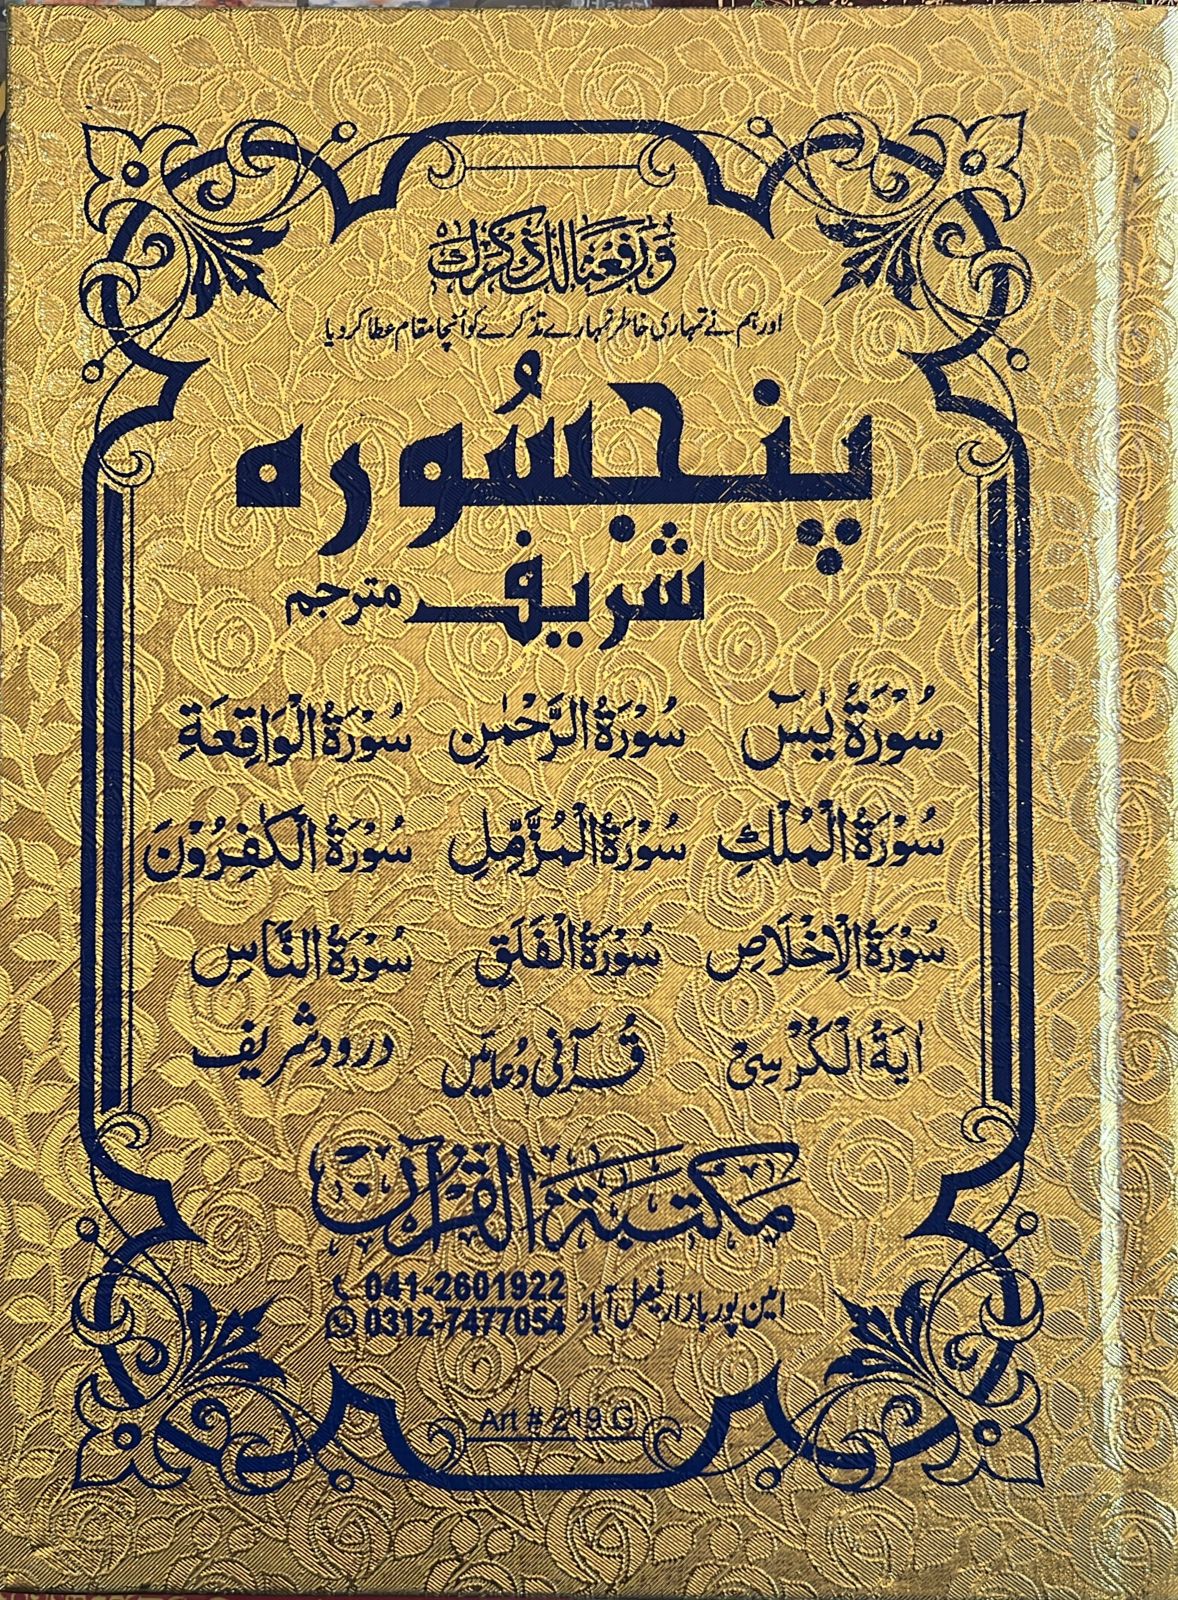 وَرَفَعْنَا لَكَ ذِكْرَكَ
اور ہم نے تمہاری خاطر تمہارے تذکرے کو اُنچا مقام عطا کر دیا
پنجسُورہ
شریف مترجم
سُوْرَةُ يٰسٓ سُوْرَةُ الرَّحْمٰنِ سُوْرَةُ الْوَاقِعَةِ
سُوْرَةُ الْمُلْكِ سُوْرَةُ الْمُزَّمِّلِ سُوْرَةُ الْكٰفِرُوْنَ
سُوْرَةُ الْاِخْلَاصِ سُوْرَةُ الْفَلَقِ سُوْرَةُ النَّاسِ
اٰيَةُ الْكُرْسِىْ قُرآنی دُعائیں درود شریف
مکتبة القرآن
امین پور بازار فیصل آباد 041-2601922
0312-7477054
Art # 219 G